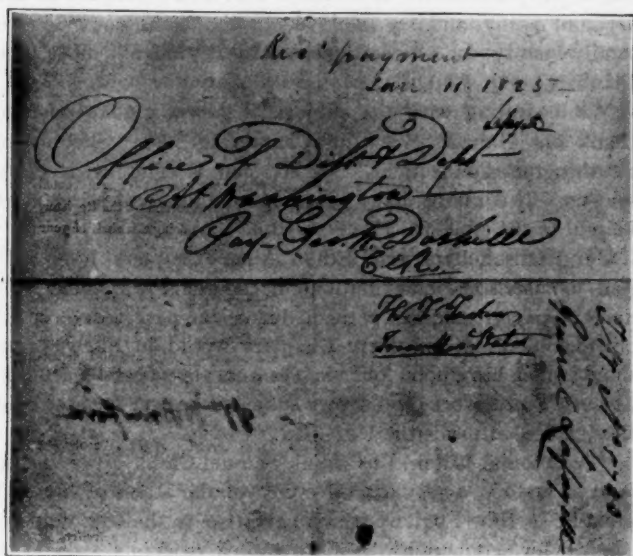 Rec'd payment
Jan. 11. 1825
Lafayette
Office of Dist & Dept
At Washington
Pay Geo. W. Dashielle
Clk
Th. T. Tucker
Treas U States
General Lafayette